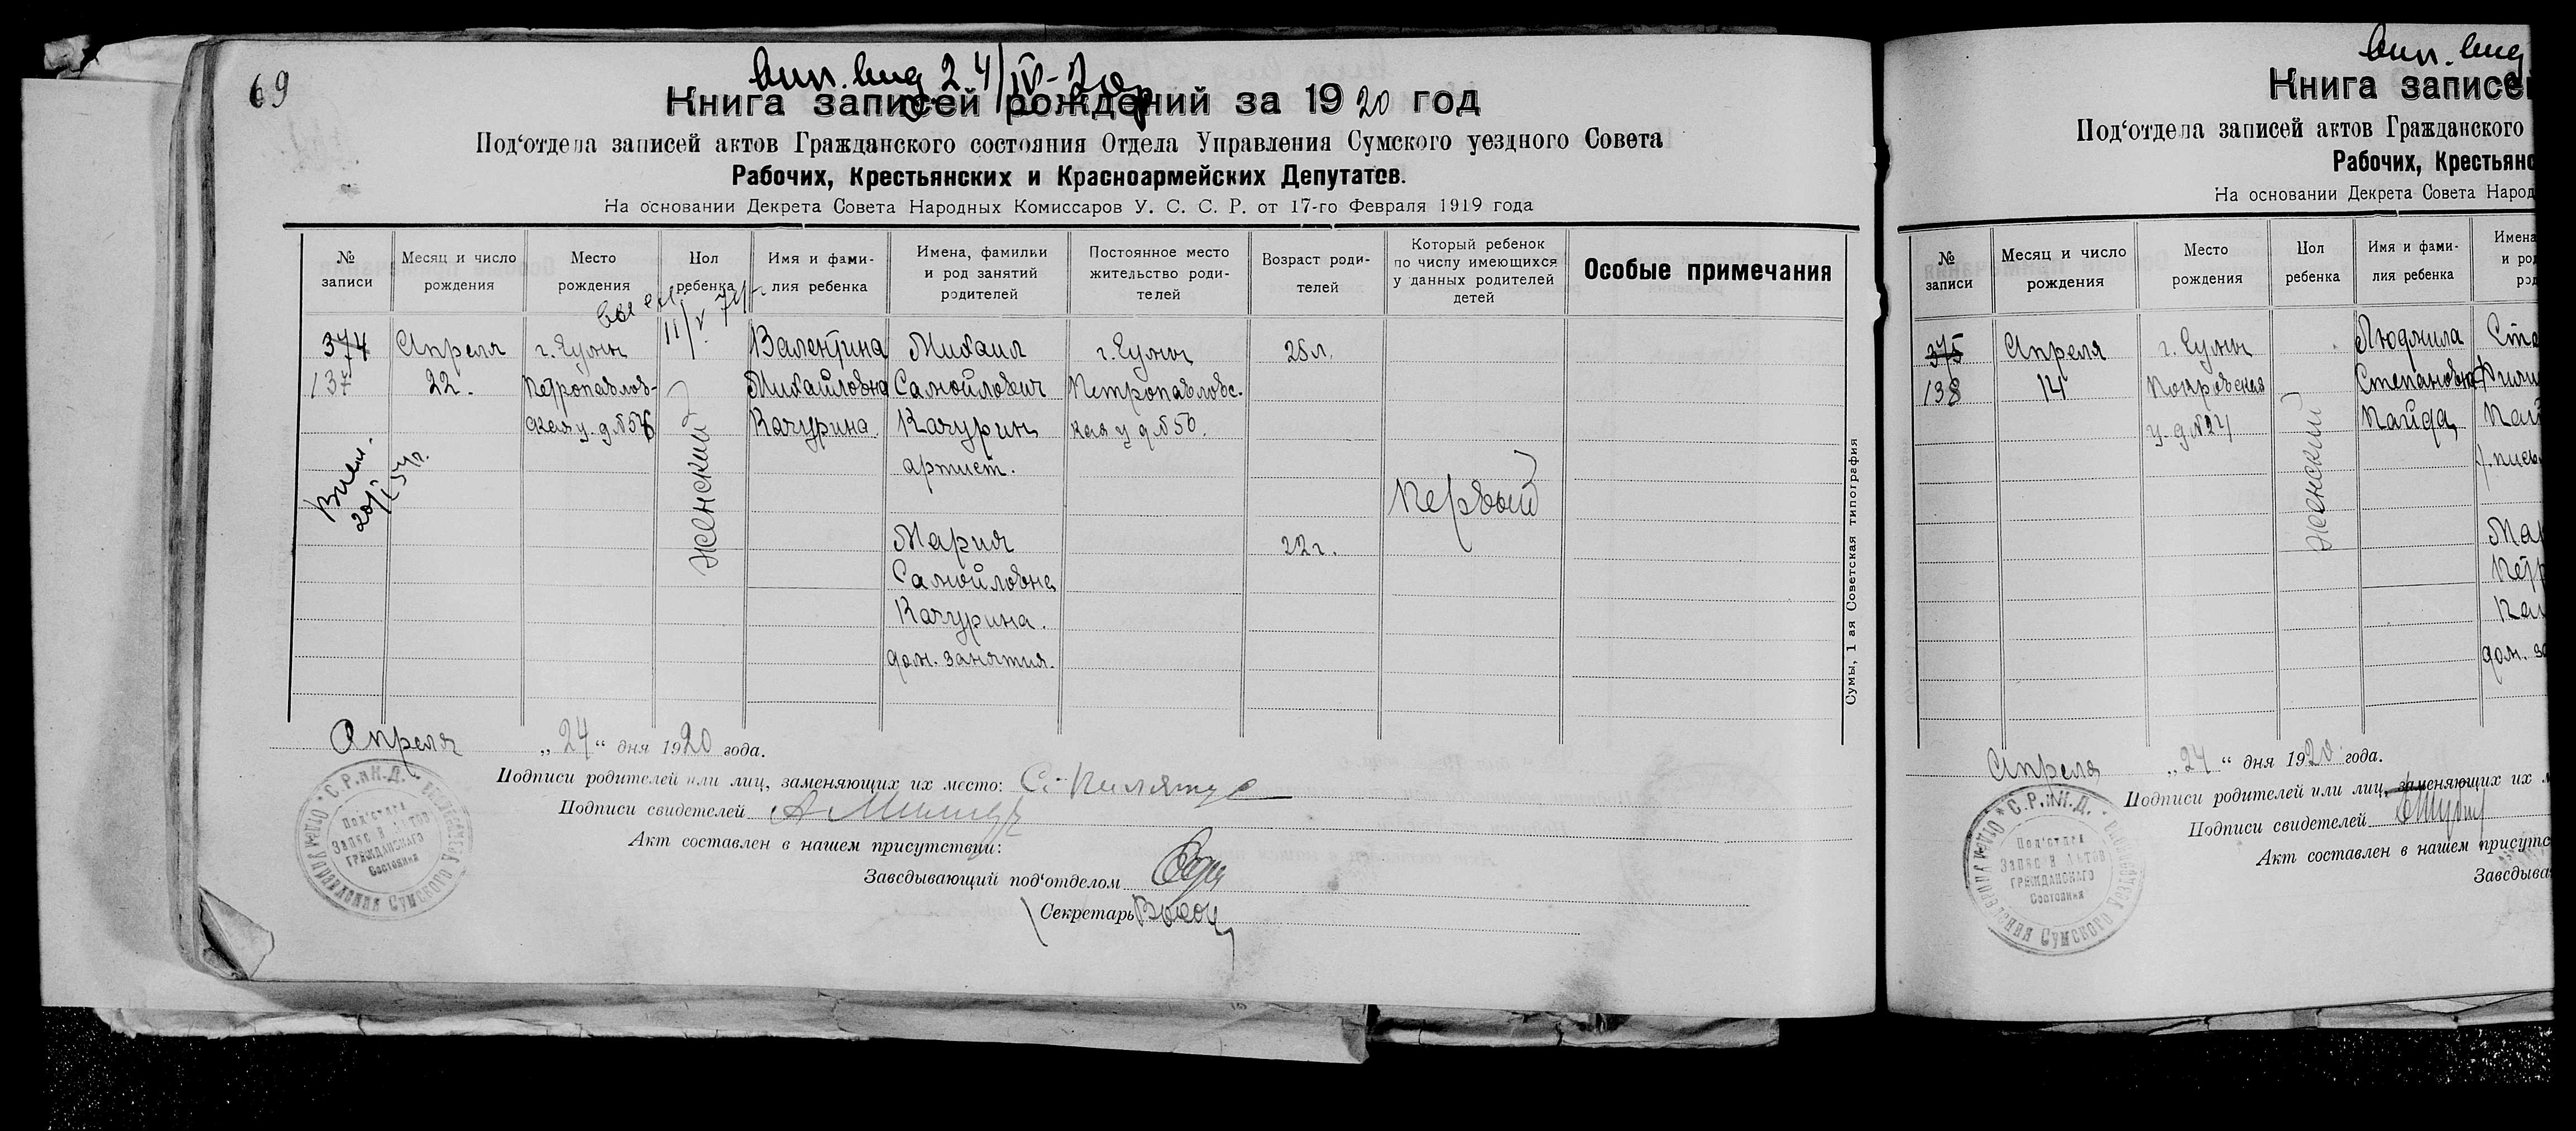 69
вып. вид 24/IV-20р
Книга записей рождений за 1920 год
Под‘отдела записей актов Гражданского состояния Отдела Управления Сумского уездного Совета
Рабочих, Крестьянских и Красноармейских Депутатов.
На основании Декрета Совета Народных Комиссаров У. С. С. Р. от 17-го Февраля 1919 года
№ записи
Месяц и число рождения
Место рождения
Пол ребенка
Имя и фамилия ребенка
Имена, фамильи и род занятий родителей
Постоянное место жительство родителей
Возраст родителей
Который ребенок по числу имеющихся у данных родителей детей
Особые примечания
374
137
Апреля
22.
г. Сумы
Петропавлов-
ская у. д №56
женский
Валентина
Михайловна
Качурина
Михаил
Самойлович
Качурин
артист.
Мария
Самойловна
Качурина.
дом. занятия.
г. Сумы
Петропавловс.
кая у д №50.
25 л.
22 г.
Первый
Сумы, 1 ая Советская типография
Апреля „24“ дня 1920 года.
Подписи родителей или лиц, заменяющих их место:
Подписи свидетелей
Акт составлен в нашем присутствии:
Заведывающий под‘отделом
Секретарь
Под‘отдел
Записи Актов
Гражданского
Состояния
вып. вид
Книга записей
Под‘отдела записей актов Гражданского
Рабочих, Крестьянс
На основании Декрета Совета Народ
№ записи
Месяц и число рождения
Место рождения
Пол ребенка
Имя и фамилия ребенка
Имена
и род
род
375
138
Апреля
14
г. Сумы
Покровская
у. д №24
женский
Людмила
Степановна
Кайда
дом. за
Апреля „24“ дня 1920 года.
Подписи родителей или лиц, заменяющих их м
Подписи свидетелей
Акт составлен в нашем присутс
Заведыва
Под‘отдел
Записи Актов
Гражданского
Состояния